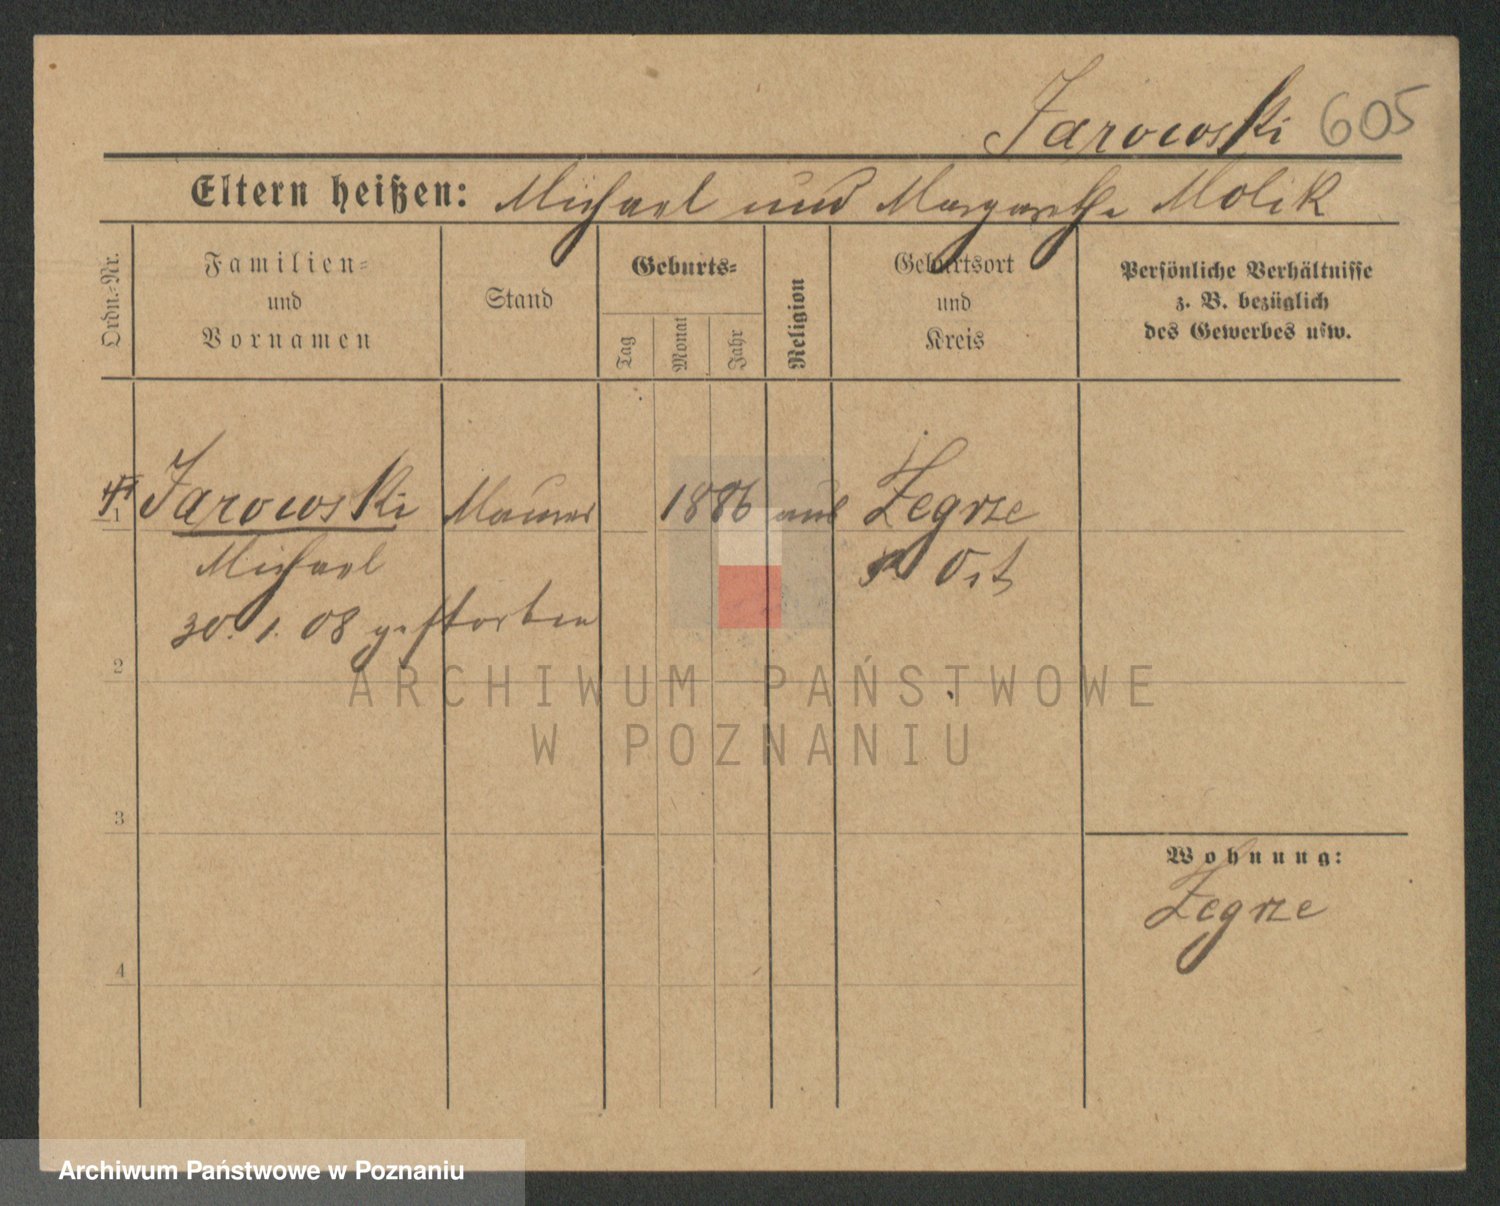 Jarowski 605
Eltern heißen: Michael und Margarethe Molik
Ordn.-Nr.
Familien-
und
Vornamen
Stand
Geburts-
Tag
Monat
Jahr
Religion
Geburtsort
und
Kreis
Persönliche Verhältnisse
z. B. bezüglich
des Gewerbes usw.
1 Jarowski Maurer 1886 Zegrze
Michael Ost
30. 1. 08 gestorben
2
ARCHIWUM PAŃSTWOWE
W POZNANIU
3
Wohnung:
Zegrze
4
Archiwum Państwowe w Poznaniu